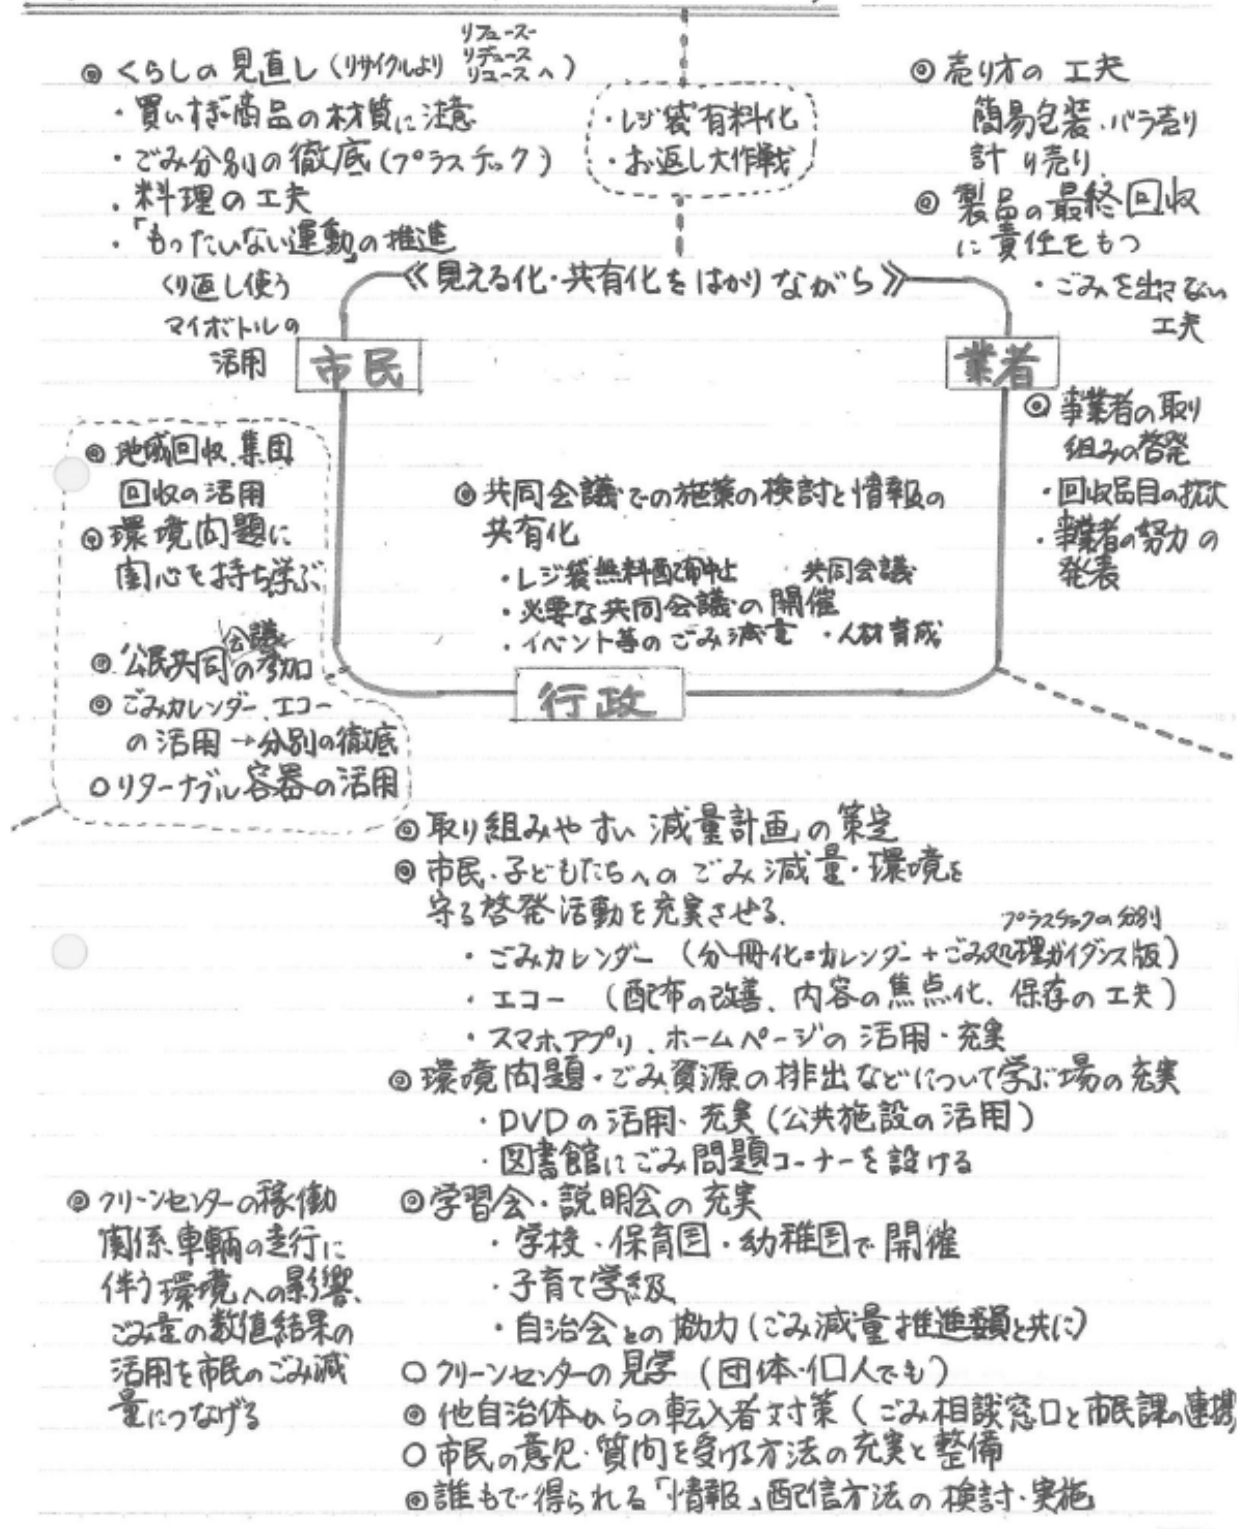 ◎くらしの見直し(リサイクルより リフューズ リデュース リユースへ)
・買いすぎ・商品の材質に注意
・ごみ分別の徹底(プラスチック)
・料理の工夫
・「もったいない運動」の推進
くり返し使う
マイボトルの
活用
・レジ袋有料化
・お返し大作戦
◎売り方の工夫
簡易包装・バラ売り
計り売り
◎製品の最終回収
に責任をもつ
・ごみを出さない
工夫
≪見える化・共有化をはかりながら≫
市民
業者
◎事業者の取り
組みの啓発
・回収品目の拡大
・事業者の努力の
発表
◎地域回収、集団
回収の活用
◎環境問題に
関心を持ち学ぶ
◎公民共同会議の参加
◎ごみカレンダー、エコー
の活用→分別の徹底
○リターナブル容器の活用
◎共同会議での施策の検討と情報の
共有化
・レジ袋無料配布中止 共同会議
・必要な共同会議の開催
・イベント等のごみ減量 ・人材育成
行政
◎取り組みやすい減量計画の策定
◎市民・子どもたちへのごみ減量・環境を
守る啓発活動を充実させる。
プラスチックの分別
・ごみカレンダー (分冊化=カレンダー+ごみ処理ガイダンス版)
・エコー (配布の改善、内容の焦点化、保存の工夫)
・スマホアプリ、ホームページの活用・充実
◎環境問題・ごみ資源の排出などについて学ぶ場の充実
・DVDの活用・充実(公共施設の活用)
・図書館にごみ問題コーナーを設ける
◎学習会・説明会の充実
・学校・保育園・幼稚園で開催
・子育て学級
・自治会との協力(ごみ減量推進委員と共に)
○クリーンセンターの見学(団体・個人でも)
◎他自治体からの転入者対策(ごみ相談窓口と市民課の連携
○市民の意見・質問を受ける方法の充実と整備
◎誰もで得られる「情報」配信方法の検討・実施
◎クリーンセンターの稼働
関係車輌の走行に
伴う環境への影響、
ごみ量の数値結果の
活用を市民のごみ減
量につなげる